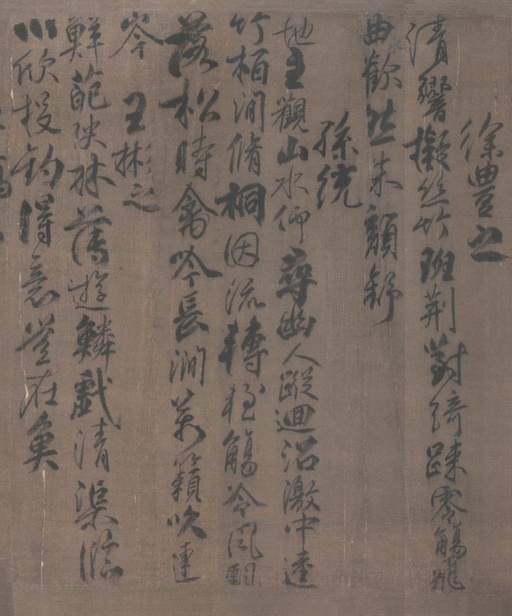 徐豊之
清響擬絲竹班荊對綺踈零觴飛
曲歡然朱顏舒
孫統
地主觀山水仰尋幽人蹤迴沼激中逵
竹柏間脩桐因流轉輕觴冷風飄
落松時禽吟長澗萬籟吹連
岑 王彬之
鮮葩映林薄遊鱗戲清渠臨
川欣投釣得意豈在魚